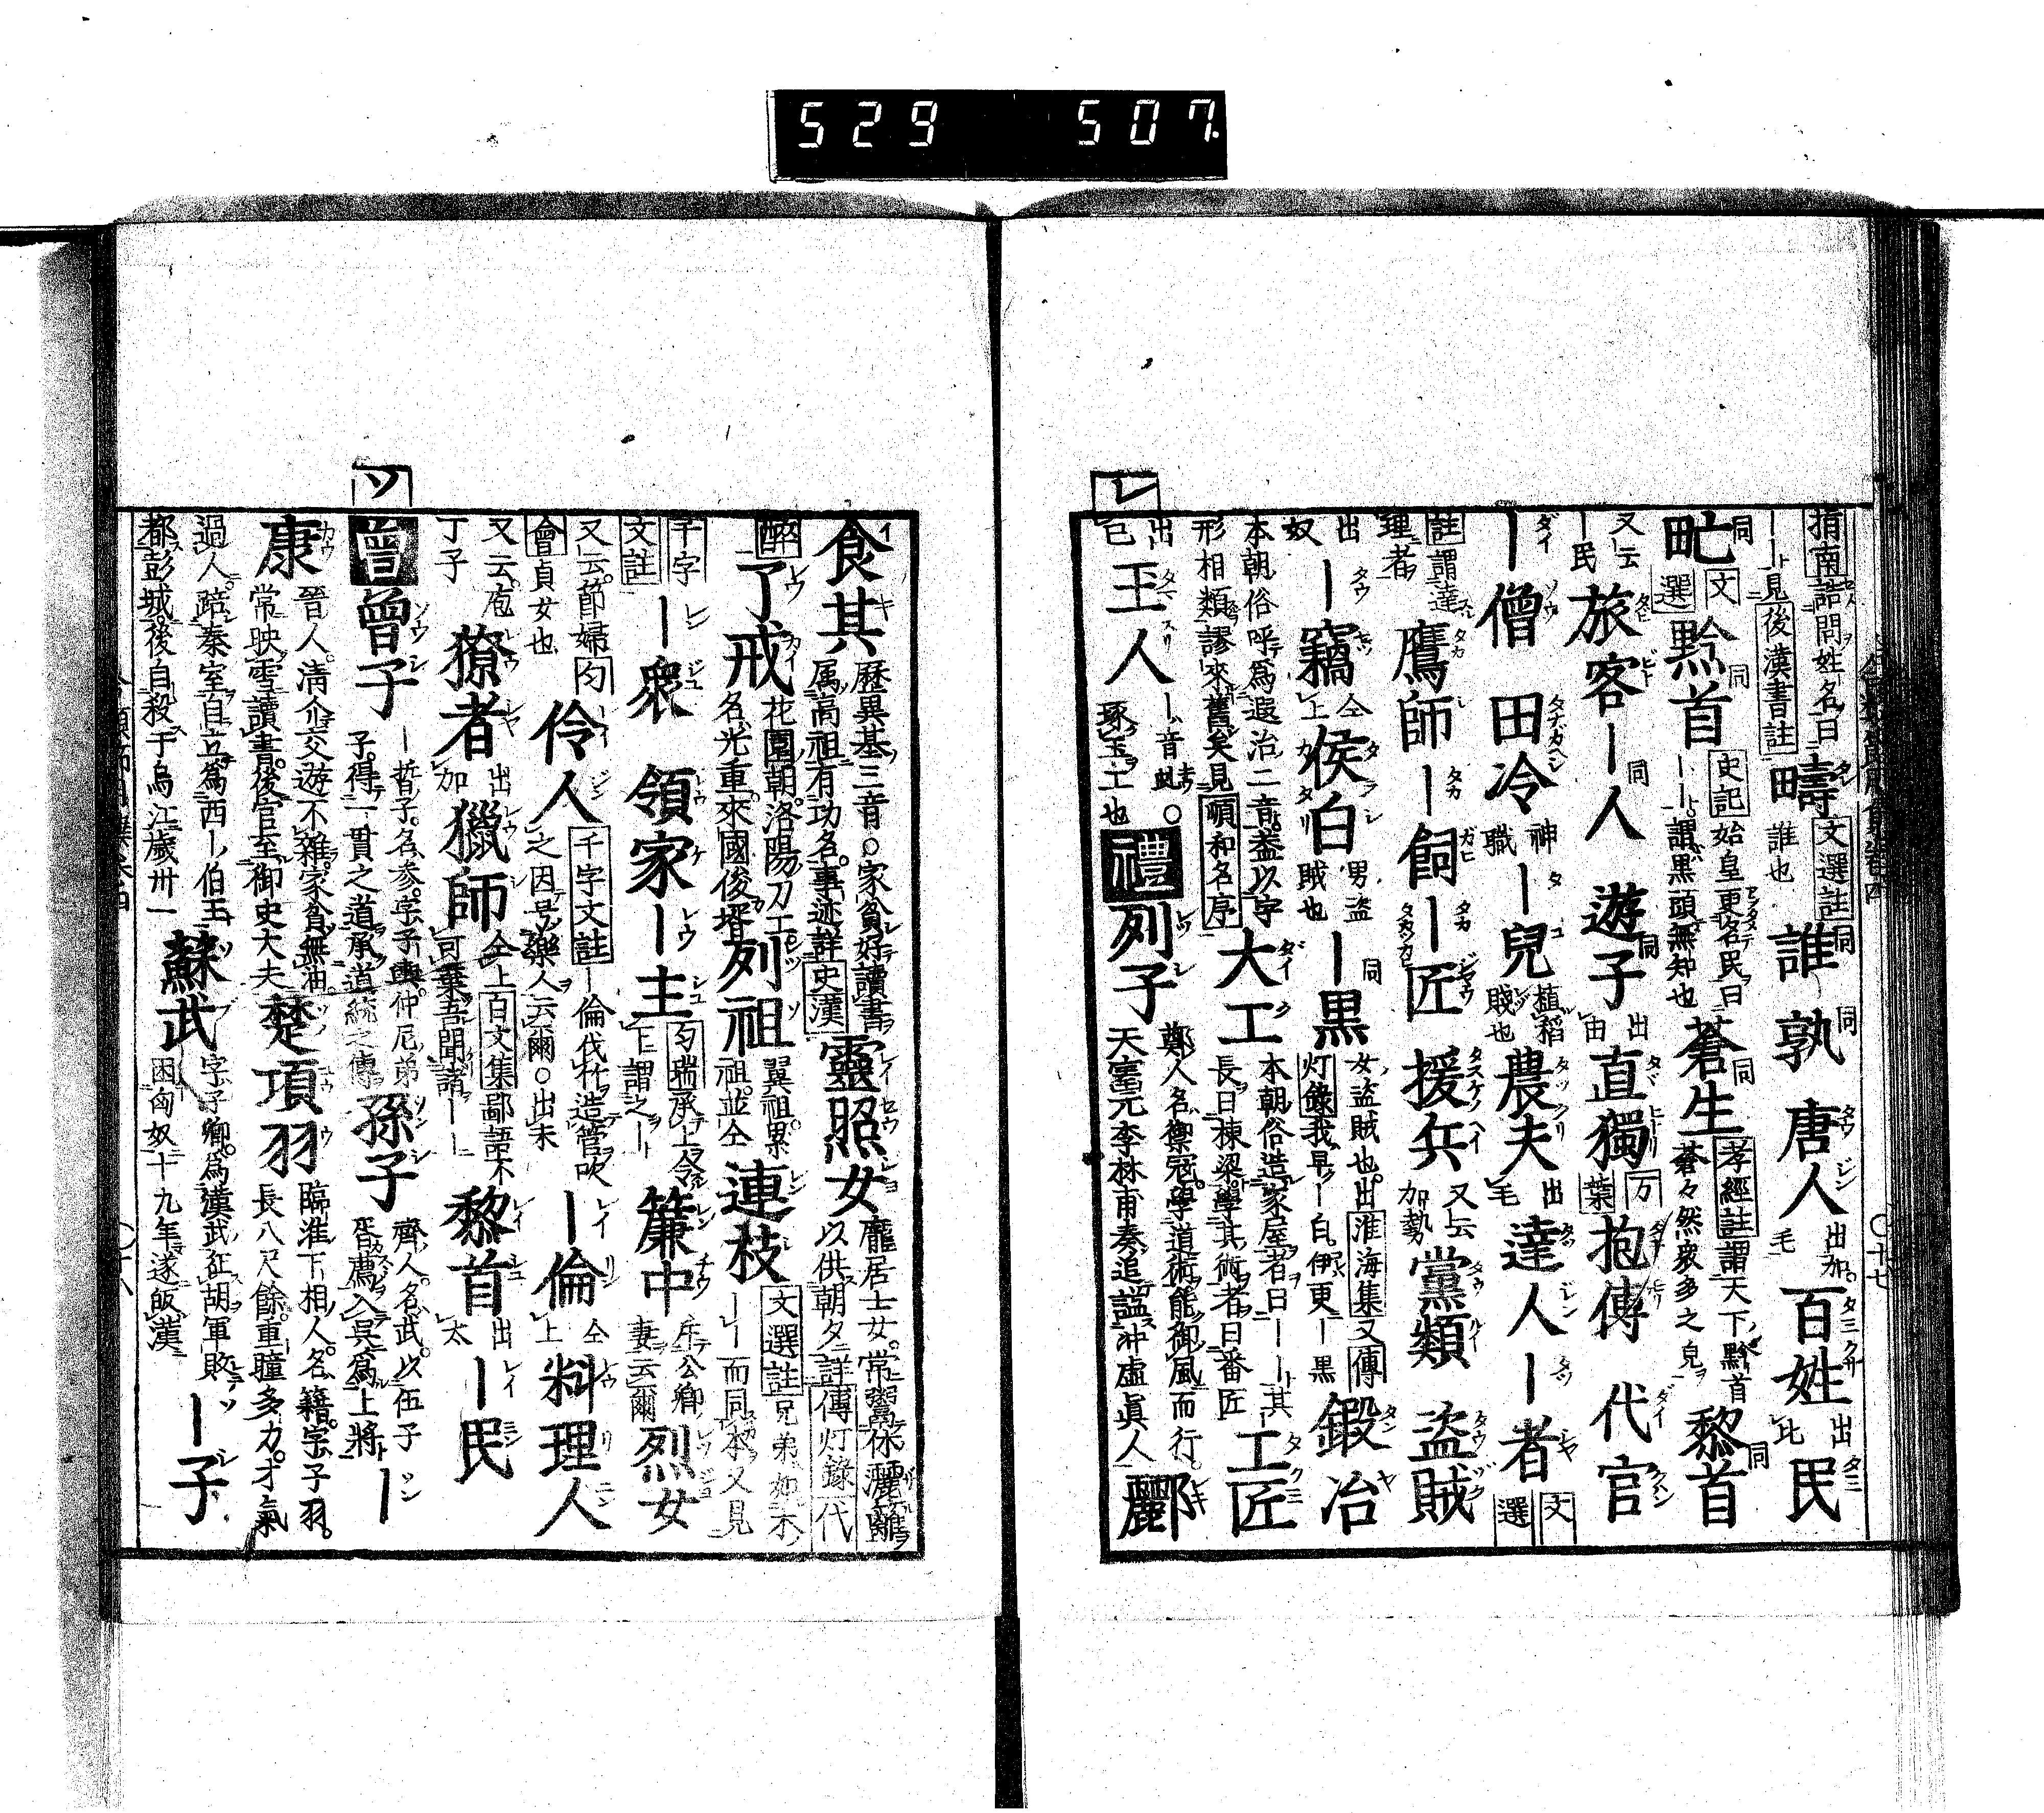 529 507.
指南詰問姓名曰
——見後漢書註 疇 文選註 誰也 誰 同 孰 同 唐人 出加 毛 百姓 出比 民
甿 同 文選 黔首 同 史記 始皇更名民曰——謂黒頭無知也 蒼生 同 孝經註 謂天下黔首蒼々然衆多之皃 黎首 同
又云—民 旅客—人 同 遊子 同 出由 直獨 万葉 抱傳 代官
—僧 田冷 神職 —兒 植稻賎也 農夫 出毛 達人—者 文選
註 謂達理者 鷹師—飼—匠 援兵 又云加勢 黨類 盜賊
出奴 —竊 仝上 侯白 男盜賊也 —黒 同 女盜賊也出 淮海集 又 傳灯錄 我早—白伊更—黒 鍛冶
本朝俗呼為遐治二音盖以字形相類謬來舊矣見 順和名序 大工 本朝俗造家屋者曰——其長曰棟梁學其術者曰番匠 工匠
出巳 王人 ——音虬 琢玉工也 ○ 禮 列子 鄭人名禦冠學道術能御風而行天寳元李林甫奏追謚冲虛眞人 酈
レ
食其 歷異基三音○家貧好讀書属高祖有功名事迹詳 史漢 靈照女 龐居士女常鬻笊籬以供朝夕詳 傳灯錄 代
醉 了戒 花園朝洛陽刀工名光重來國俊壻 列祖 翼祖累祖並仝 連枝 文選註 兄弟如木——而同本又見
千字文註 —衆 領家—主 匀瑞 承上令下謂之— 簾中 斥公卿妻云爾 烈女
又云節婦 匀會 貞女也 伶人 千字文註 —倫伐竹造管吹之因号樂人云爾○出末 —倫 仝上 料理人
又云庖丁子 獠者 出加 獵師 仝上 百文集 鄙語不可棄吾聞諸—— 黎首 出太 —民
ソ
曾 曾子 —晳子名参字子輿仲尼弟子得一貫之道承道統之傳 孫子 齊人名武以伍子胥薦入呉爲上將 —
康 晉人清介交遊不雜家貧無油常映雪讀書後官至御史大夫 楚項羽 臨淮下相人名籍字子羽長八尺餘重瞳多力才氣
過人踣秦室自立爲西—伯王都彭城後自殺于烏江歲卅一 蘇武 字子卿爲漢武征胡軍敗困匈奴十九年遂皈漢 —子